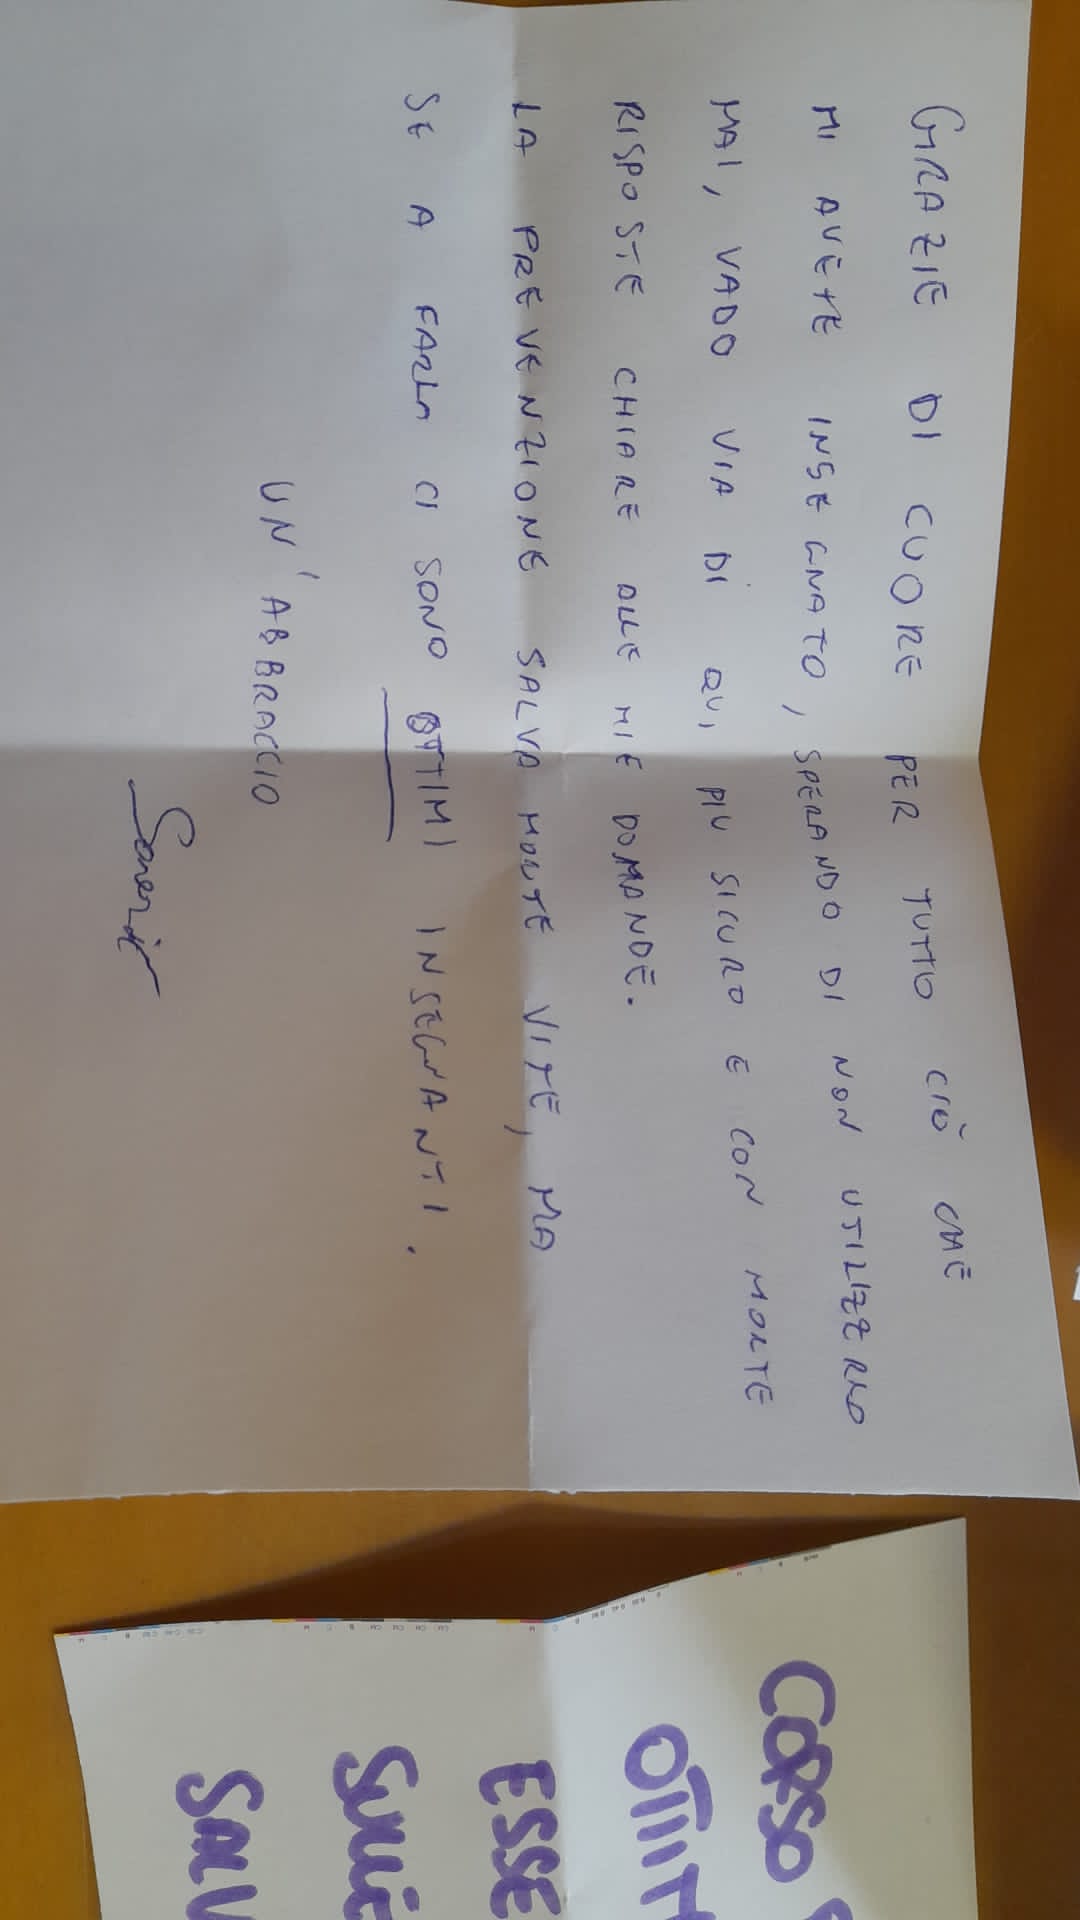 GRAZIE DI CUORE PER TUTTO CIÒ CHE
MI AVETE INSEGNATO, SPERANDO DI NON UTILIZZARLO
MAI, VADO VIA DI QUI, PIU SICURO E CON MOLTE
RISPOSTE CHIARE ALLE MIE DOMANDE.
LA PREVENZIONE SALVA MOLTE VITE, MA
SE A FARLA CI SONO OTTIMI INSEGNANTI.
UN'ABBRACCIO
CORSO
ESSE